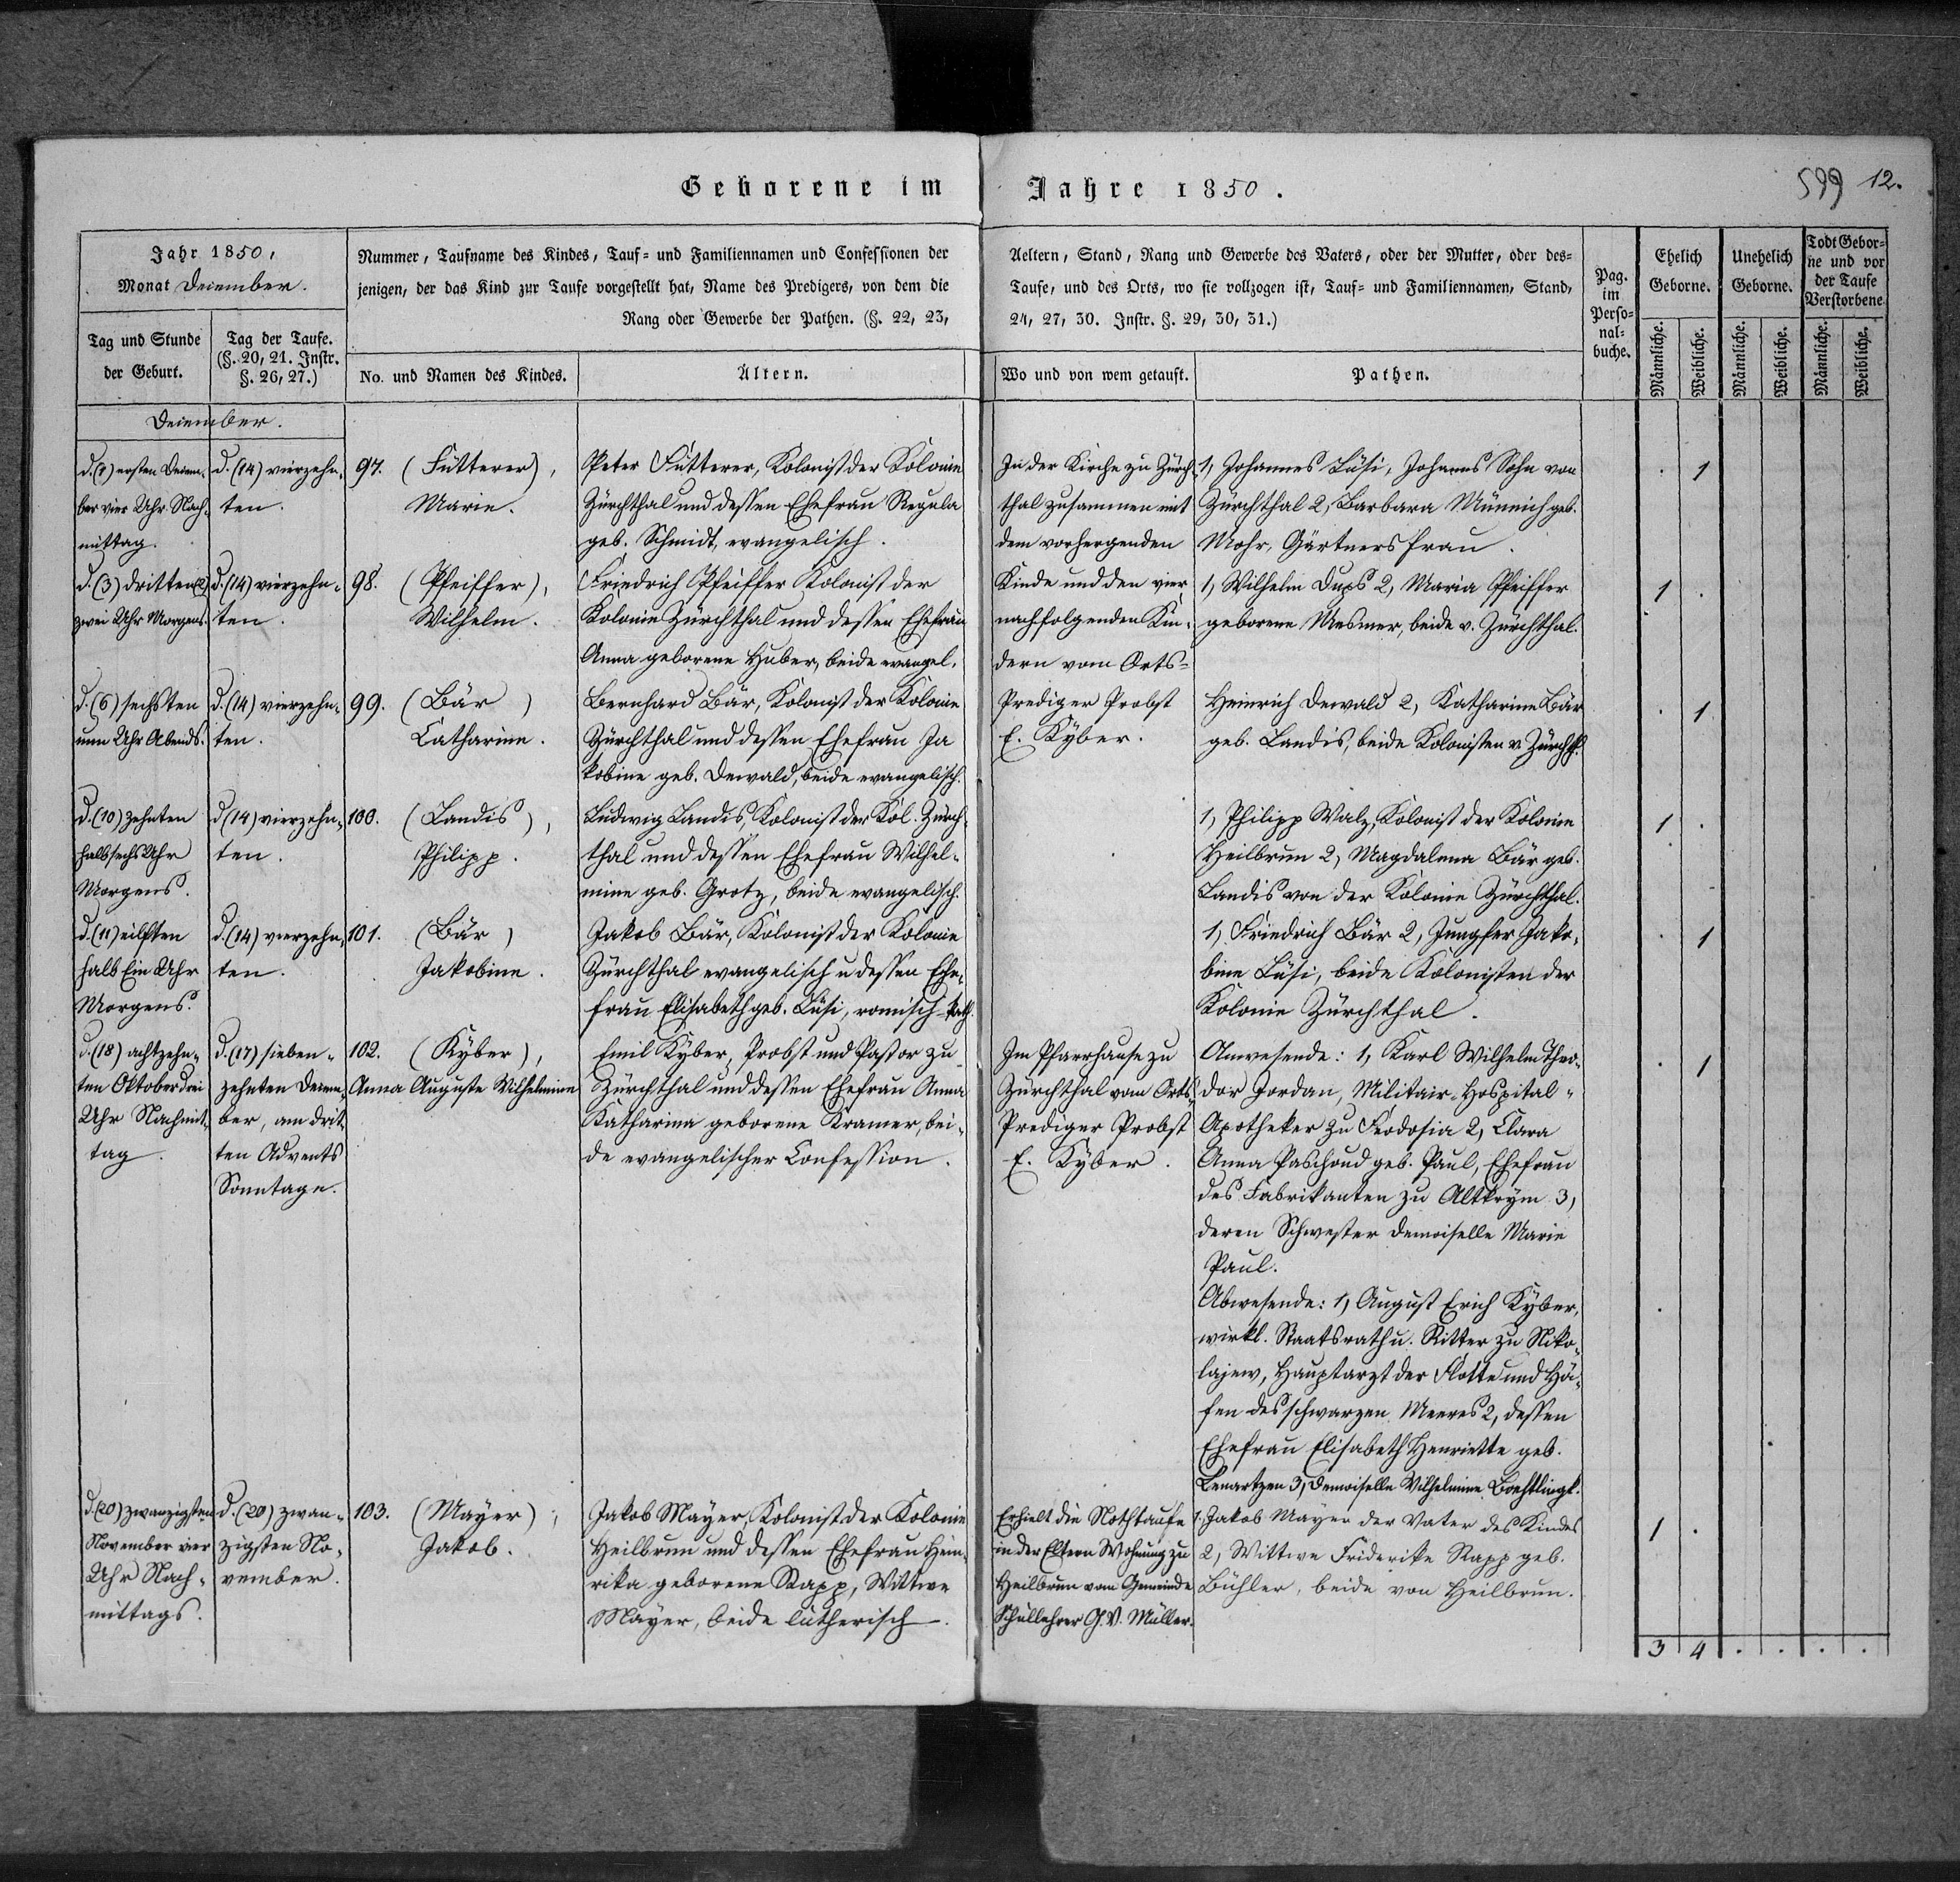 Geborene im Jahre 1850.
599 12.
Jahr 1850,
Monat December.
Tag und Stunde
der Geburt.
Tag der Taufe.
(§. 20, 21. Instr.
§. 26, 27.)
Nummer, Taufname des Kindes, Tauf- und Familiennamen und Confessionen der
jenigen, der das Kind zur Taufe vorgestellt hat, Name des Predigers, von dem die
Rang oder Gewerbe der Pathen. (§. 22, 23,
No. und Namen des Kindes.
Ältern.
Aeltern, Stand, Rang und Gewerbe des Vaters, oder der Mutter, oder des-
Taufe, und des Orts, wo sie vollzogen ist, Tauf- und Familiennamen, Stand,
24, 27, 30. Instr. §. 29, 30, 31.)
Wo und von wem getauft.
Pathen.
Pag.
im
Perso-
nal-
buche.
Ehelich
Geborne.
Unehelich
Geborne.
Todt Gebor-
ne und vor
der Taufe
Verstorbene
Männliche.
Weibliche.
Männliche.
Weibliche.
Männliche.
Weibliche.
December.
d. (1) ersten Decem-
ber vier Uhr Nach-
mittag.
d. (14) vierzehn-
ten.
97. (Fütterer),
Marie.
Peter Fütterer, Kolonist der Kolonie
Zürchthal und dessen Ehefrau Regula
geb. Schmidt, evangelisch.
In der Kirche zu Zürch-
thal zusammen mit
dem vorhergenden
Kinde und den vier
nachfolgenden Kin-
dern vom Orts-
Prediger Probst
E. Kyber.
1, Johannes Lüsi, Johannes Sohn von
Zürchthal 2, Barbara Münnich geb.
Mohr, Gärtners frau.
. 1
d. (3) dritten
zwei Uhr Morgens.
d. (14) vierzehn-
ten.
98. (Pfeiffer),
Wilhelm.
Friedrich Pfeiffer Kolonist der
Kolonie Zürchthal und dessen Ehefrau
Anna geborene Huber, beide evangel.
1, Wilhelm Dups 2, Maria Pfeiffer
geborene Mesmer, beide v. Zürchthal.
1 .
d. (6) sechsten
neun Uhr Abends.
d. (14) vierzehn-
ten.
99. (Bär)
Catharine.
Bernhard Bär, Kolonist der Kolonie
Zürchthal und dessen Ehefrau Ja
kobine geb. Dewald, beide evangelisch.
Heinrich Dewald 2, Katharine Bär
geb. Landis, beide Kolonisten v. Zürchth.
. 1
d. (10) zehnten
halb sechs Uhr
Morgens.
d (14) vierzehn-
ten.
100. (Landis),
Philipp.
Ludwig Landis, Kolonist der Kol. Zürch-
thal und dessen Ehefrau Wilhel-
mine geb. Grotz, beide evangelisch.
1, Philipp Walz, Kolonist der Kolonie
Heilbrun 2, Magdalena Bär geb.
Landis von der Kolonie Zürchthal.
1 .
d. (11) eilften
halb Ein Uhr
Morgens.
d. (14) vierzehn-
ten.
101. (Bär)
Jakobine.
Jakob Bär, Kolonist der Kolonie
Zürchthal evangelisch u dessen Ehe-
frau Elisabeth geb. Lüsi, romisch-kath.
1, Friedrich Bär 2, Jungfer Jako-
bine Lüsi, beide Kolonisten der
Kolonie Zürchthal.
. 1
d. (18) achtzehn-
ten Oktober drei
Uhr Nachmit-
tag.
d. (17) sieben-
zehnten Decem-
ber, am drit-
ten Advents
Sonntage.
102. (Kyber),
Anna Auguste Wilhelmine
Emil Kyber, Probst und Pastor zu
Zürchthal und dessen Ehefrau Anna
Katharina geborene Kramer, bei-
de evangelischer Confession.
Im Pfarrhause zu
Zürchthal vom Orts-
Prediger Probst
E. Kyber.
Anwesende: 1, Karl Wilhelm Theo-
dor Jordan, Militair-Hospital-
Apotheker zu Feodosia 2, Clara
Anna Paschoud geb. Paul, Ehefrau
des Fabrikanten zu Altkrym 3,
deren Schwester Demoiselle Marie
Paul.
Abwesende: 1, August Erich Kyber,
wirkl. Staatsrath u. Ritter zu Niko-
lajew, Hauptarzt der Flotte und Hä-
fen des schwarzen Meeres 2, dessen
Ehefrau Elisabeth Henriette geb.
Lenartzen 3, Demoiselle Wilhelmine Boehtlingk.
. 1
d. (20) zwanzigsten
November vier
Uhr Nach-
mittags.
d. (20) zwan-
zigsten No-
vember.
103. (Mayer),
Jakob.
Jakob Mayer, Kolonist der Kolonie
Heilbrun und dessen Ehefrau Hein-
rika geborene Rapp, Wittwe
Mayer, beide lutherisch.
Erhielt die Nothtaufe
in der Eltern Wohnung zu
Heilbrun vom Gemeinde
Schullehrer G. V. Müller.
1, Jakob Mayer der Vater des Kindes
2, Wittwe Friderike Rapp geb.
Bühler, beide von Heilbrun.
1 .
3 4 . . . .